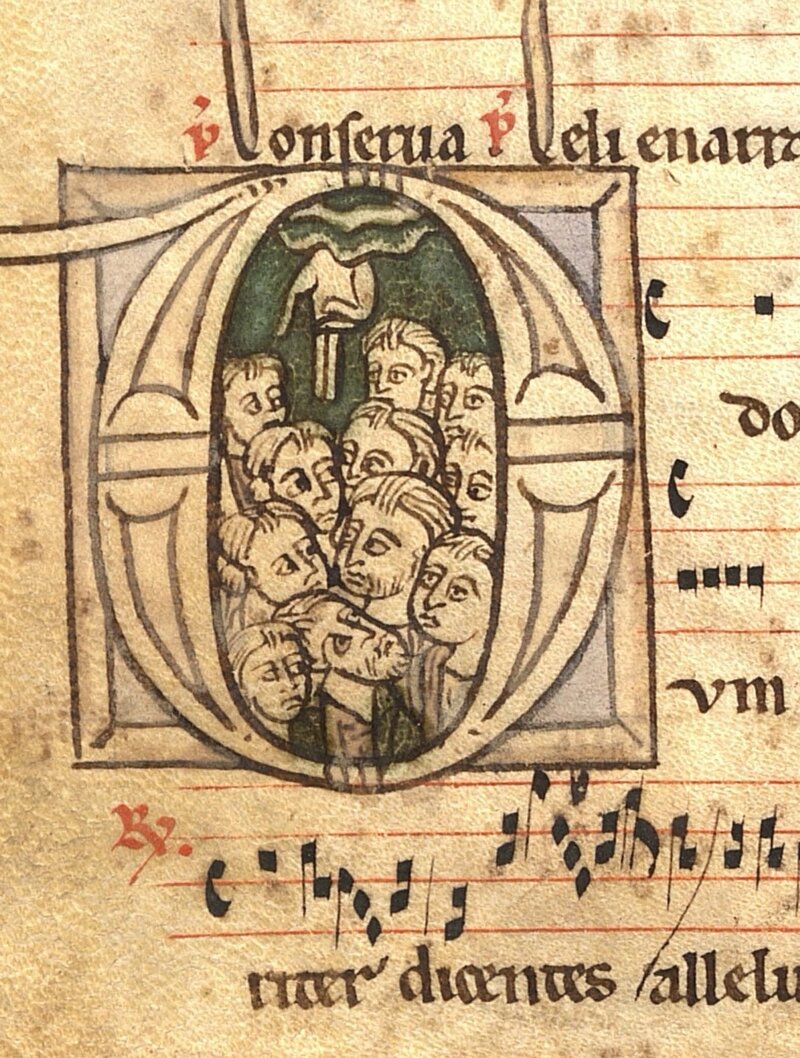 p̄ Conserua p̄ Celi enarra
do
vm
℟.
riter dicentes allelu